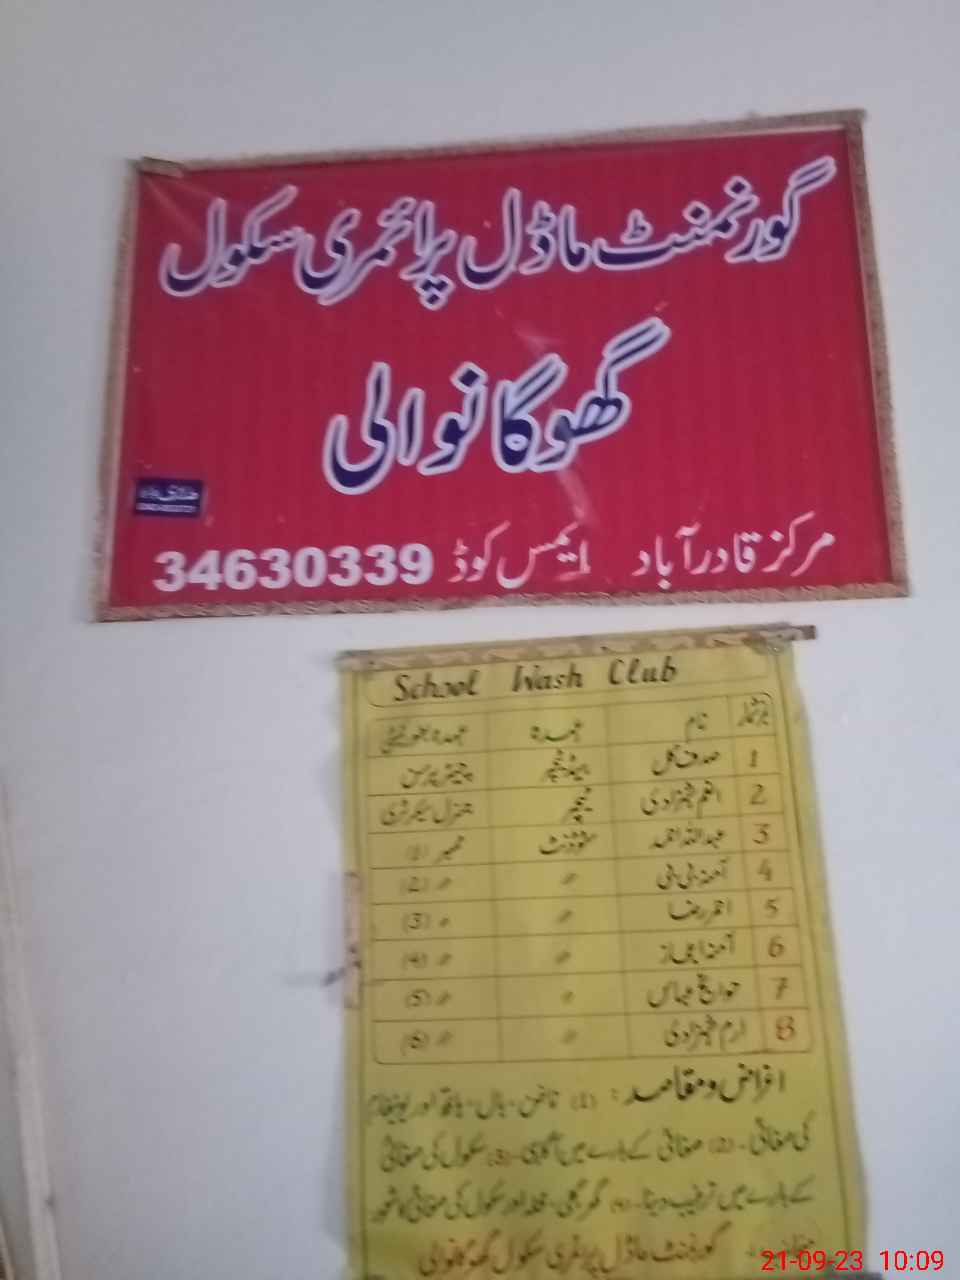 گورنمنٹ ماڈل پرائمری سکول
گھوگانوالی
مرکز قادرآباد ایمس کوڈ 34630339
School Wash Club
نمبرشمار نام عہدہ عہدہ بطور کمیٹی
1 صدف گل ہیڈ ٹیچر چیئرپرسن
2 انعم شہزادی ٹیچر جنرل سیکرٹری
3 عبداللہ احمد سٹوڈنٹ ممبر (1)
4 آمنہ بی بی 〃 〃 (2)
5 احمر رضا 〃 〃 (3)
6 آمنہ 〃 〃 (4)
7 عباس 〃 〃 (5)
8 ارم شہزادی 〃 〃 (6)
اغراض و مقاصد: (1) ناخن، بال، ہاتھ اور یونیفارم
کی صفائی۔ (2) صفائی کے بارے میں آگاہی۔ (3) سکول کی صفائی
کے بارے میں ترغیب دینا۔ (4) گھر، گلی، محلہ اور سکول کی صفائی کا شعور
گورنمنٹ ماڈل پرائمری سکول گھوگانوالی
21-09-23 10:09